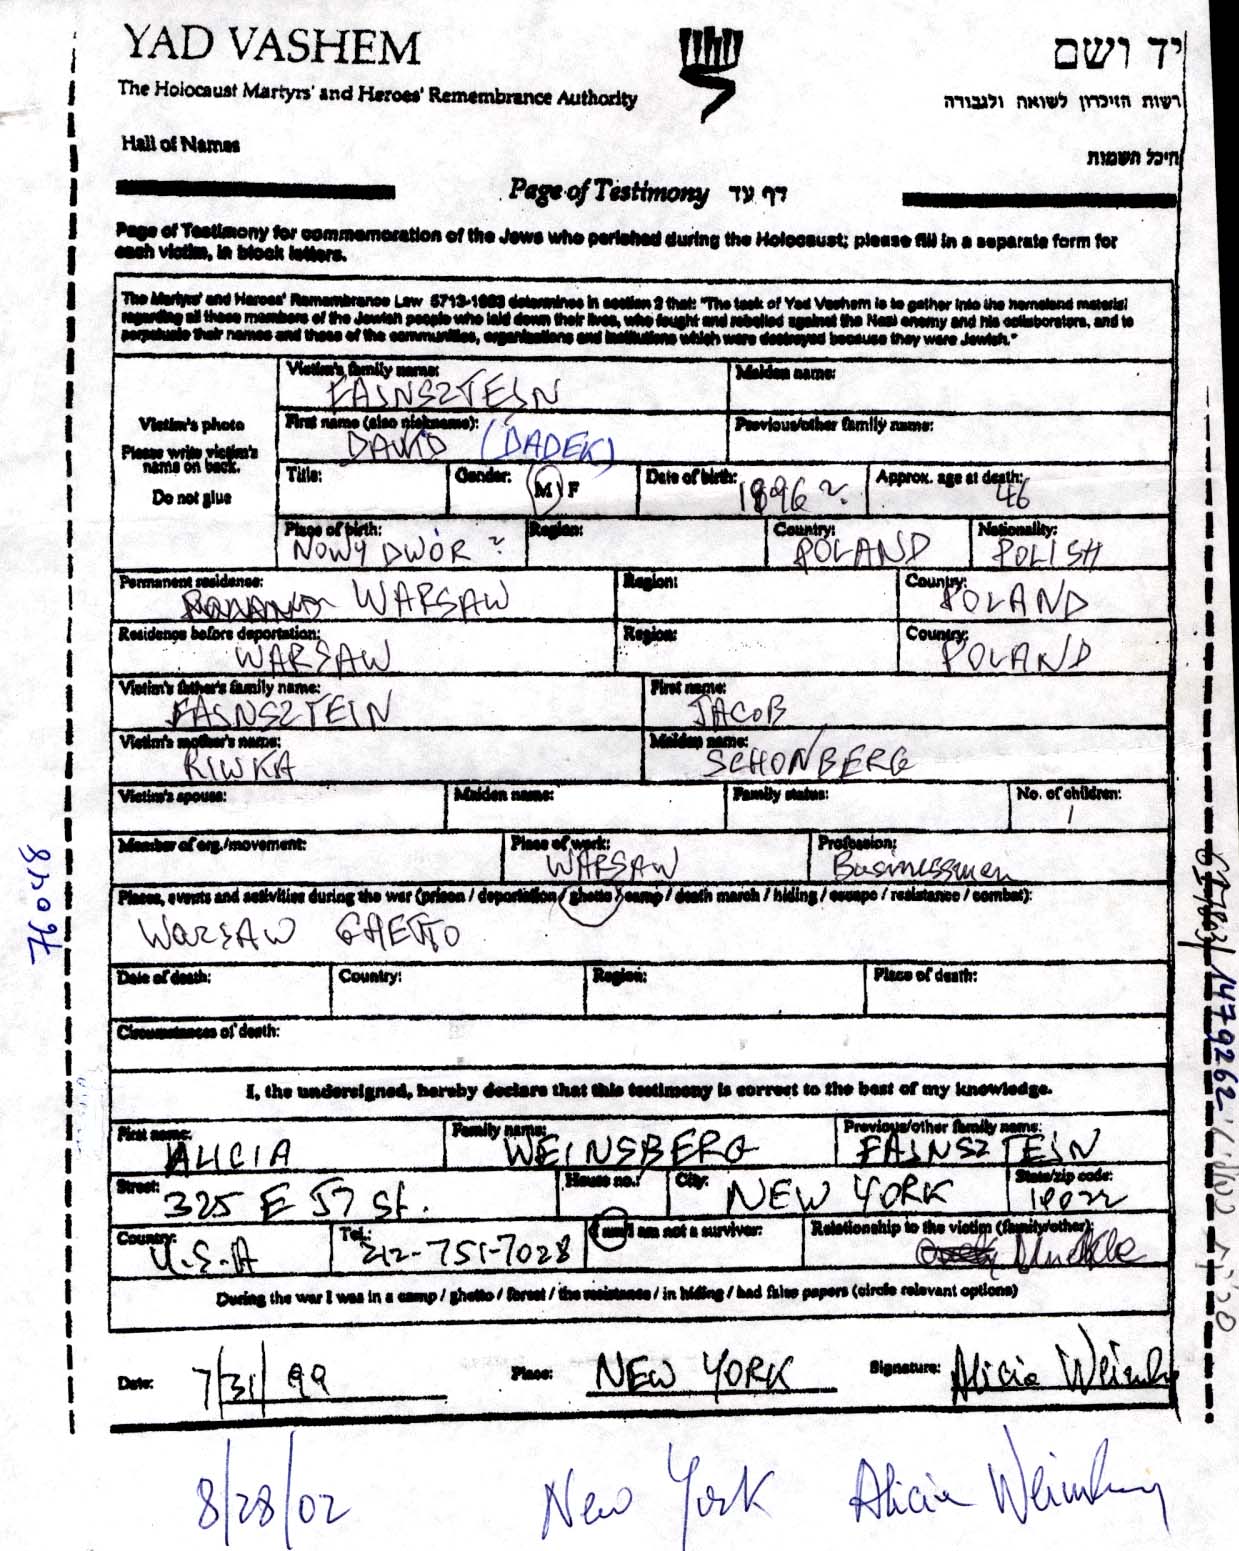 YAD VASHEM
יד ושם
The Holocaust Martyrs' and Heroes' Remembrance Authority
רשות הזיכרון לשואה ולגבורה
Hall of Names
היכל השמות
Page of Testimony דף עד
Page of Testimony for commemoration of the Jews who perished during the Holocaust; please fill in a separate form for
each victim, in block letters.
The Martyrs' and Heroes' Remembrance Law 5713-1953 determines in section 2 that: "The task of Yad Vashem is to gather into the homeland material
regarding all those members of the Jewish people who laid down their lives, who fought and rebelled against the Nazi enemy and his collaborators, and to
perpetuate their names and those of the communities, organizations and institutions which were destroyed because they were Jewish."
Victim's photo
Please write victim's
name on back.
Do not glue
Victim's family name: Maiden name:
FAJNSZTEJN
First name (also nickname): Previous/other family name:
DAWID (DADEK)
Title: Gender: M F Date of birth: 1896 ? Approx. age at death: 46
Place of birth: Region: Country: Nationality:
NOWY DWÓR ? POLAND POLISH
Permanent residence: Region: Country:
WARSAW POLAND
Residence before deportation: Region: Country:
WARSAW POLAND
Victim's father's family name: First name:
FAJNSZTEIN JACOB
Victim's mother's name: Maiden name:
RIWKA SCHONBERG
Victim's spouse: Maiden name: Family status: No. of children:
1
Member of org./movement: Place of work: Profession:
WARSAW Businessman
Places, events and activities during the war (prison / deportation / ghetto / camp / death march / hiding / escape / resistance / combat):
WARSAW GHETTO
Date of death: Country: Region: Place of death:
Circumstances of death:
I, the undersigned, hereby declare that this testimony is correct to the best of my knowledge.
First name: Family name: Previous/other family name:
ALICIA WEINSBERG FAJNSZTEJN
Street: House no.: City: State/zip code:
325 E 57 St. NEW YORK 10022
Country: Tel.: I am/I am not a survivor: Relationship to the victim (family/other):
U.S.A 212-751-7028
During the war I was in a camp / ghetto / forest / the resistance / in hiding / had false papers (circle relevant options)
Date: 7/31/99 Place: NEW YORK Signature: Alicia
8/28/02 New York Alicia
76048
1479262